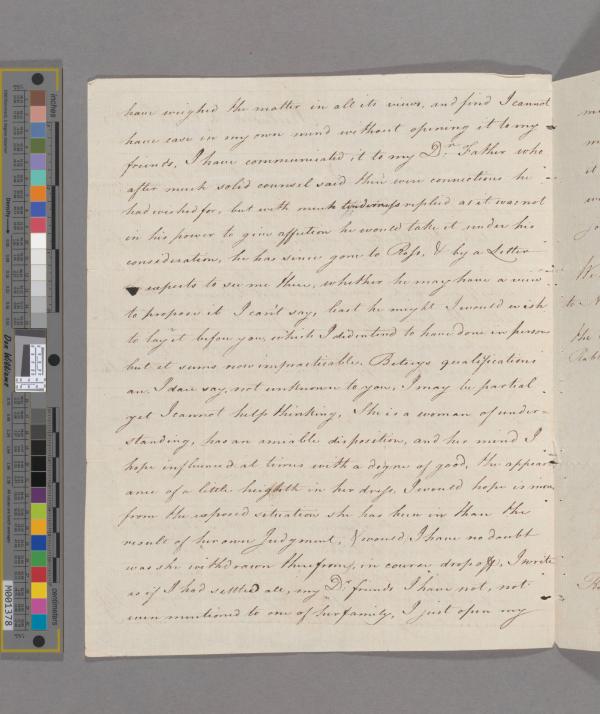 have weighed the matter in all its views, and find I cannot
have ease in my own mind without opening it to my
friends, I have communicated it to my Dr. Father who
after much solid counsel said there were connections he
had wished for, but with much tenderness replied as it was not
in his power to give affection he would take it under his
consideration, he has since gone to Ross, & by a Letter
expects to see me there, whether he may have a view
to propose it I can't say, least he might I would wish
to lay it before you, which I did intend to have done in person
but it seems now impracticable, Betsys qualifications
are I dare say, not unknown to you, I may be partial
yet I cannot help thinking, She is a woman of under-
standing, has an amiable disposition, and her mind I
hope influenced at times with a degree of good, the appear
ance of a little heighth in her dress, I would hope is more
from the exposed situation she has been in than the
result of her own Judgment, & would I have no doubt
was she withdrawn therefrom, in course drop off, I write
as if I had settled all, my Dr. friends I have not, not
even mentioned to one of her family, I just open my
inches
centimeters
Don Williams
M001378